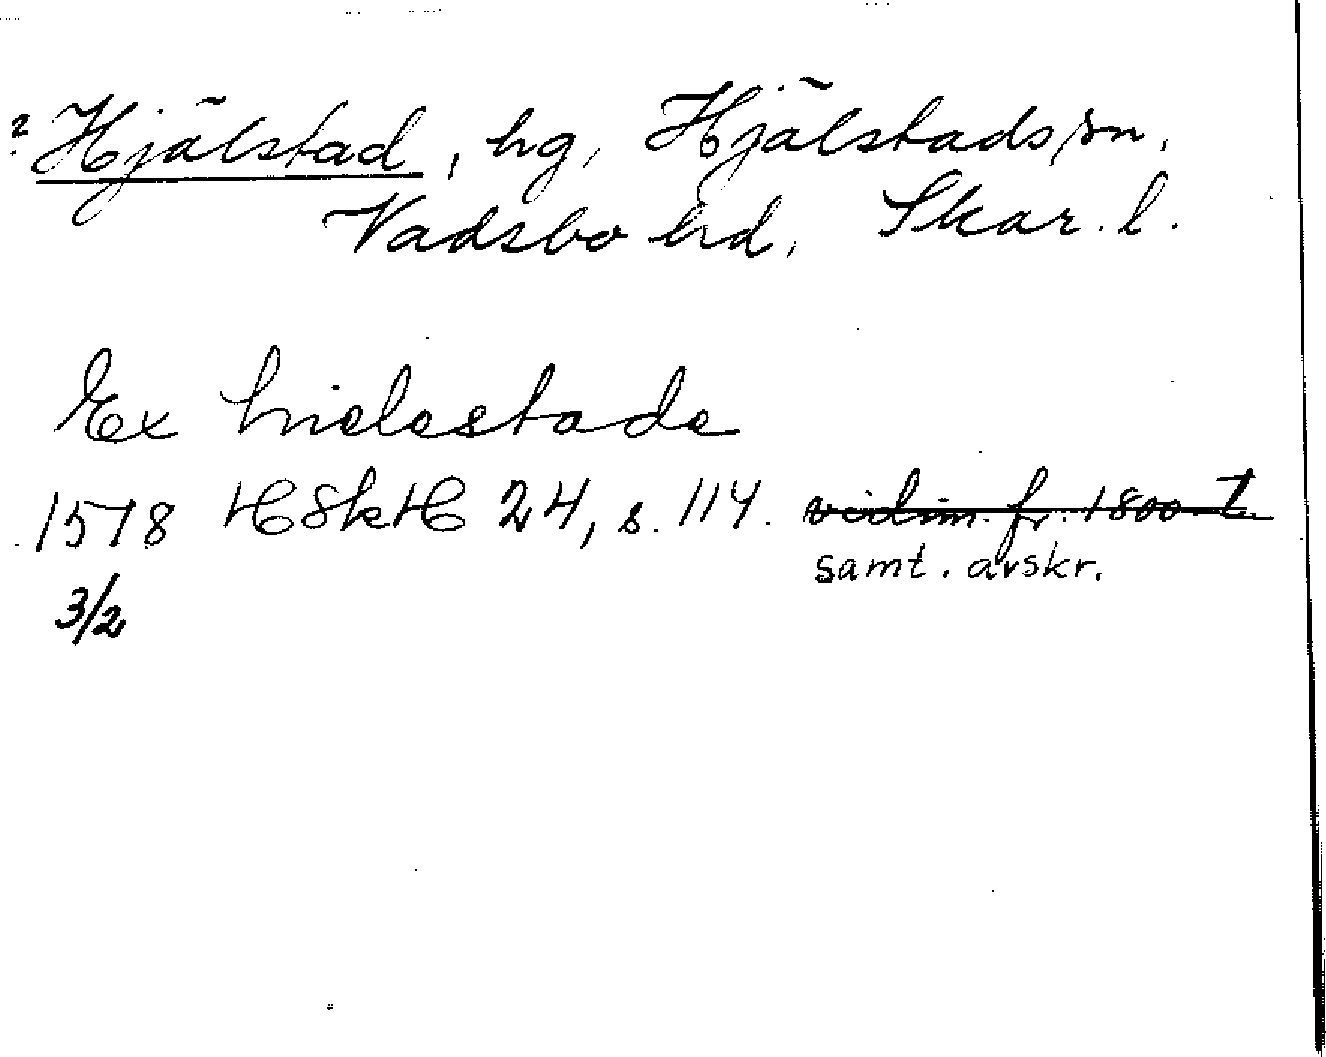 ? Hjälstad, hg, Hjälstads sn,
Vadsbo hd, Skar. l.
Ex hielestade
1578 HSkH 24, s. 114. vidim. fr. 1800-t.
samt. avskr.
3/2